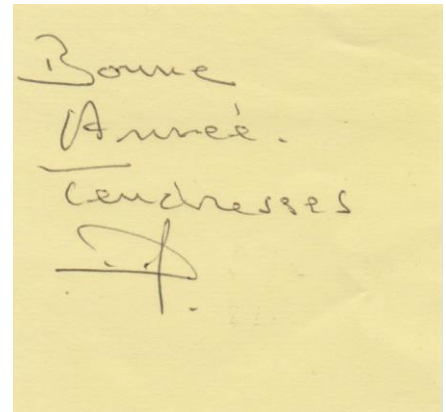 Bonne
Année.
Tendresses